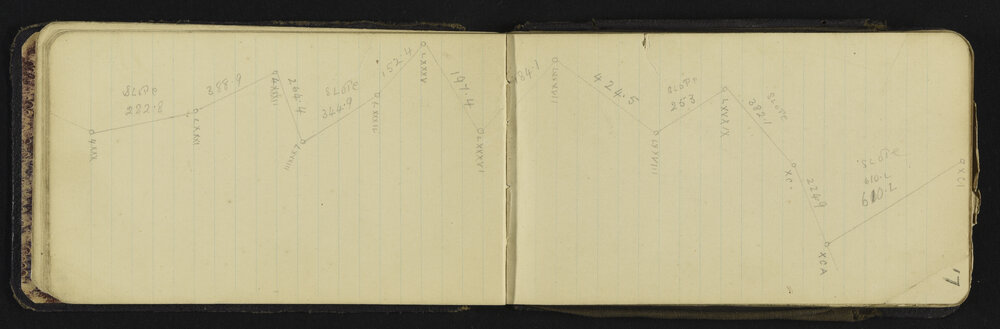 LXXX
SLOPE
282.8
LXXXI
388.9
LXXXII
264.4
LXXXIII
SLOPE
344.9
152.4
LXXXV
197.4
LXXXVI
184.1
LXXXVII
424.5
LXXXVIII
SLOPE
LXXXIX
382.1
XC
224.9
XCA
SLOPE
610.7
610.7
XCI
17